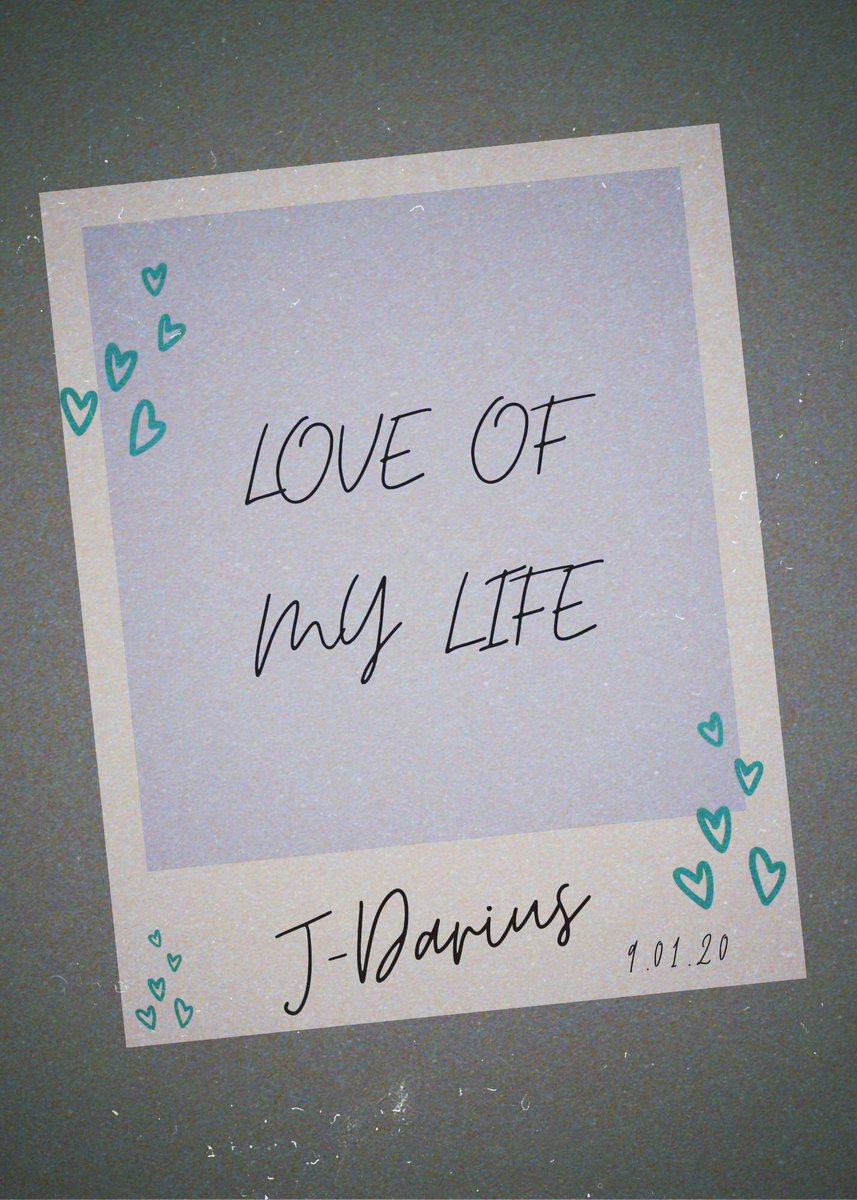 LOVE OF
MY LIFE
J-Darius
9.01.20